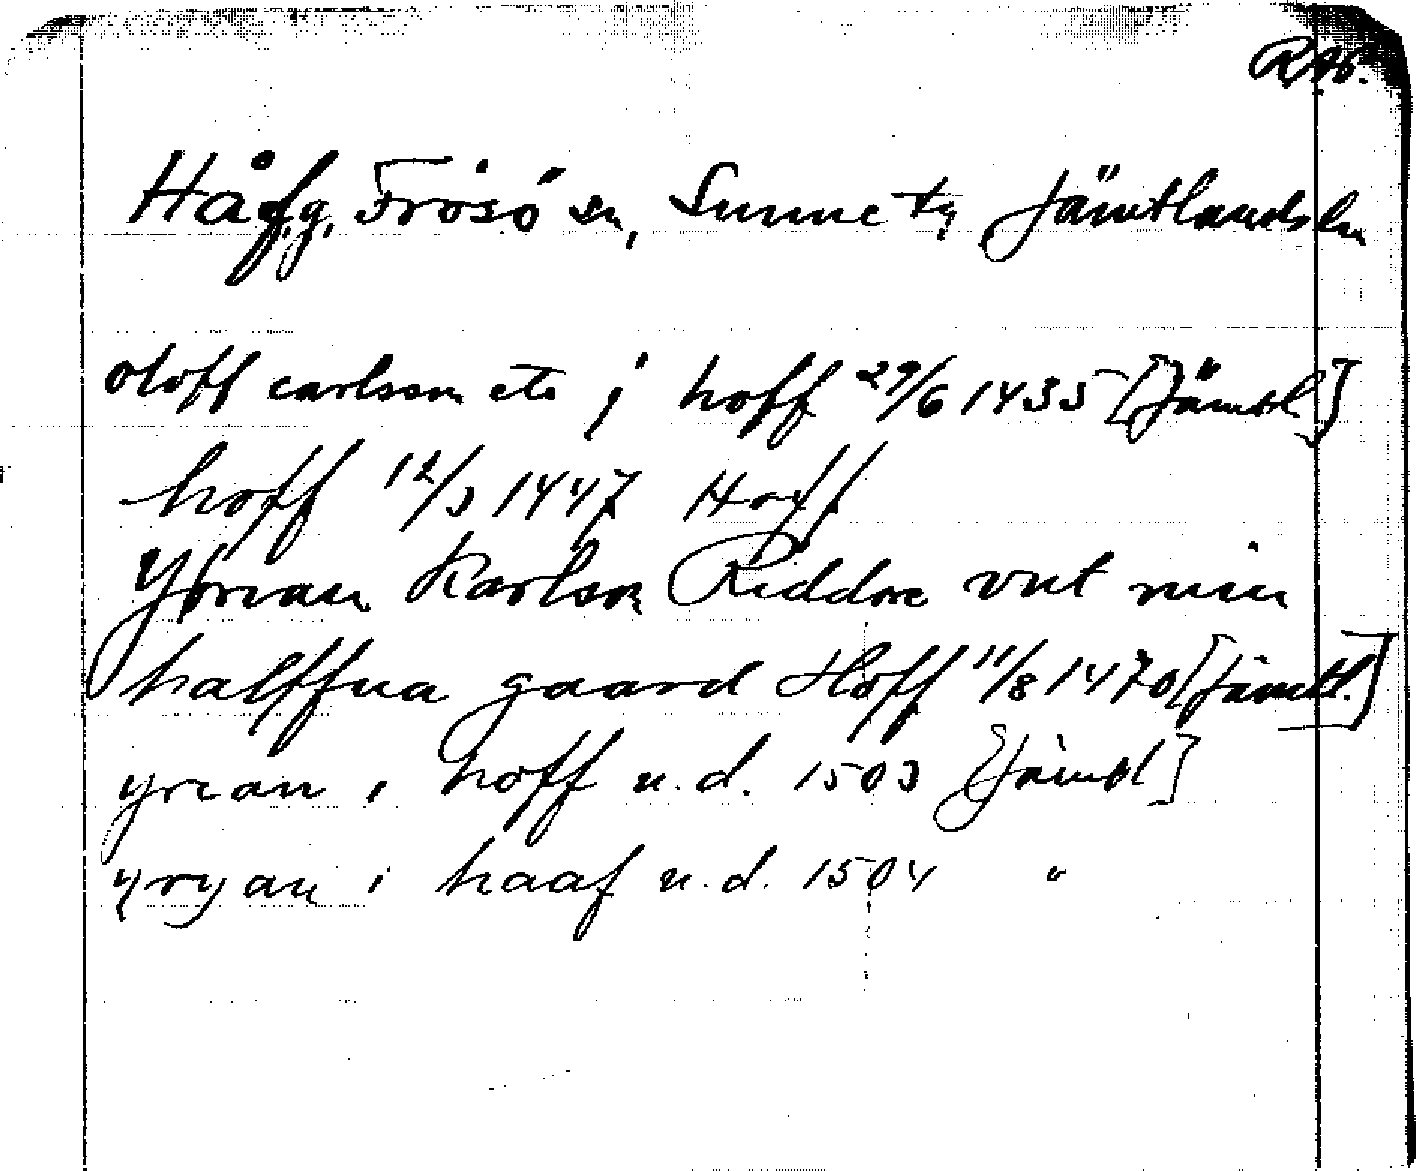 RAp.
Håf, g, Frösö sn, Sunne tg Jämtlands ln
oloff carlsson etc j hoff 29/6 1435 [Jämtl]
hoff 12/3 1447 Hoff
Yörian Karlson Riddare vnt min
halffua gaard Hoff 11/8 1470 [Jämtl.]
yrian i hoff u.d. 1503 [Jämtl]
yryan i haaf u.d. 1504 "